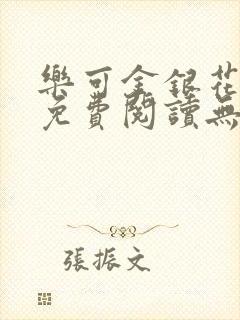 樂可金銀花
免費閱讀無
張振文